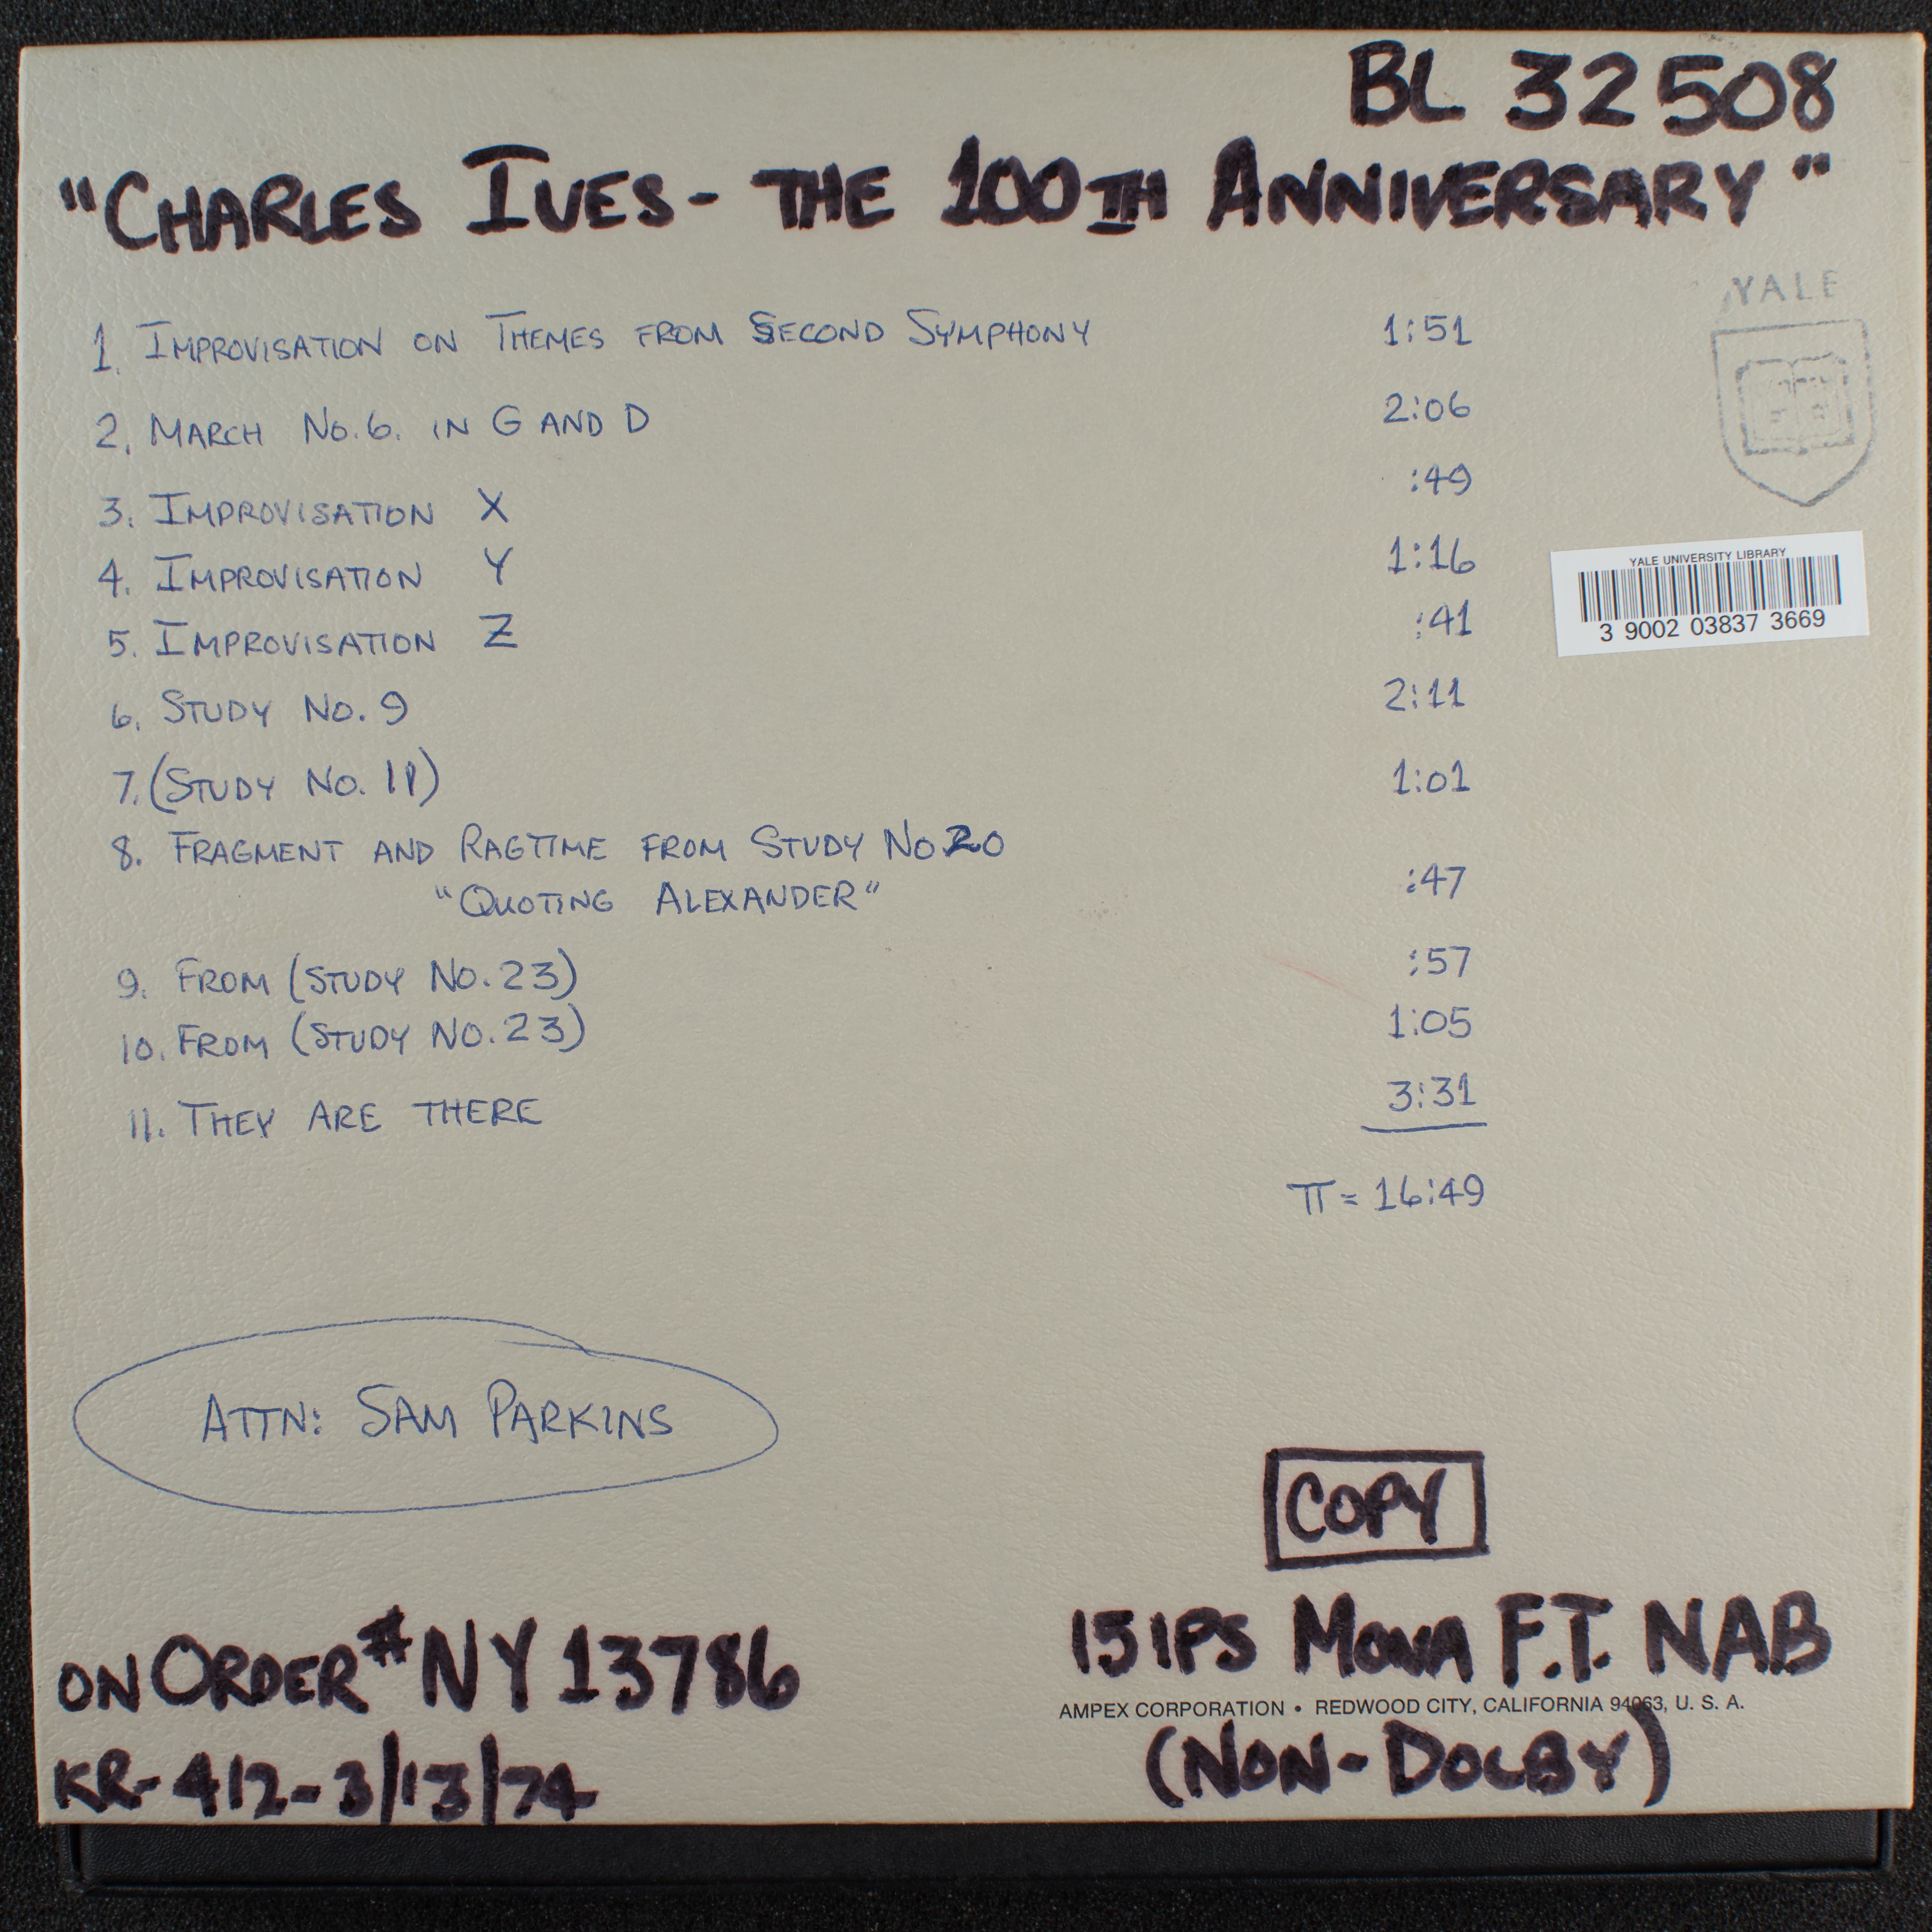 BL 32508
"CHARLES IVES - THE 100TH ANNIVERSARY"
YALE
1. IMPROVISATION ON THEMES FROM SECOND SYMPHONY 1:51
2. MARCH NO. 6. IN G AND D 2:06
3. IMPROVISATION X :49
4. IMPROVISATION Y 1:16
5. IMPROVISATION Z :41
YALE UNIVERSITY LIBRARY
3 9002 03837 3669
6. STUDY NO. 9 2:11
7. (STUDY NO. 11) 1:01
8. FRAGMENT AND RAGTIME FROM STUDY NO 20
"QUOTING ALEXANDER" :47
9. FROM (STUDY NO. 23) :57
10. FROM (STUDY NO. 23) 1:05
11. THEY ARE THERE 3:31
TT = 16:49
ATTN: SAM PARKINS
COPY
ON ORDER # NY 13786
15 IPS MONA F.T. NAB
AMPEX CORPORATION • REDWOOD CITY, CALIFORNIA 94063, U. S. A.
KR-412-3/13/74
(NON-DOLBY)